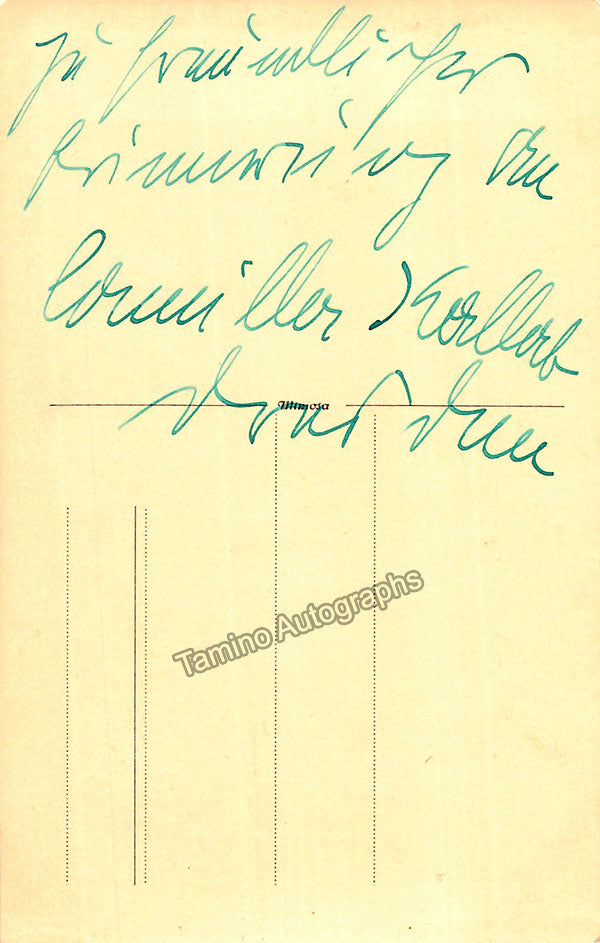 Zu freundlicher
Erinnerung an
Camiller
Dresden
Mimosa
Tamino Autographs